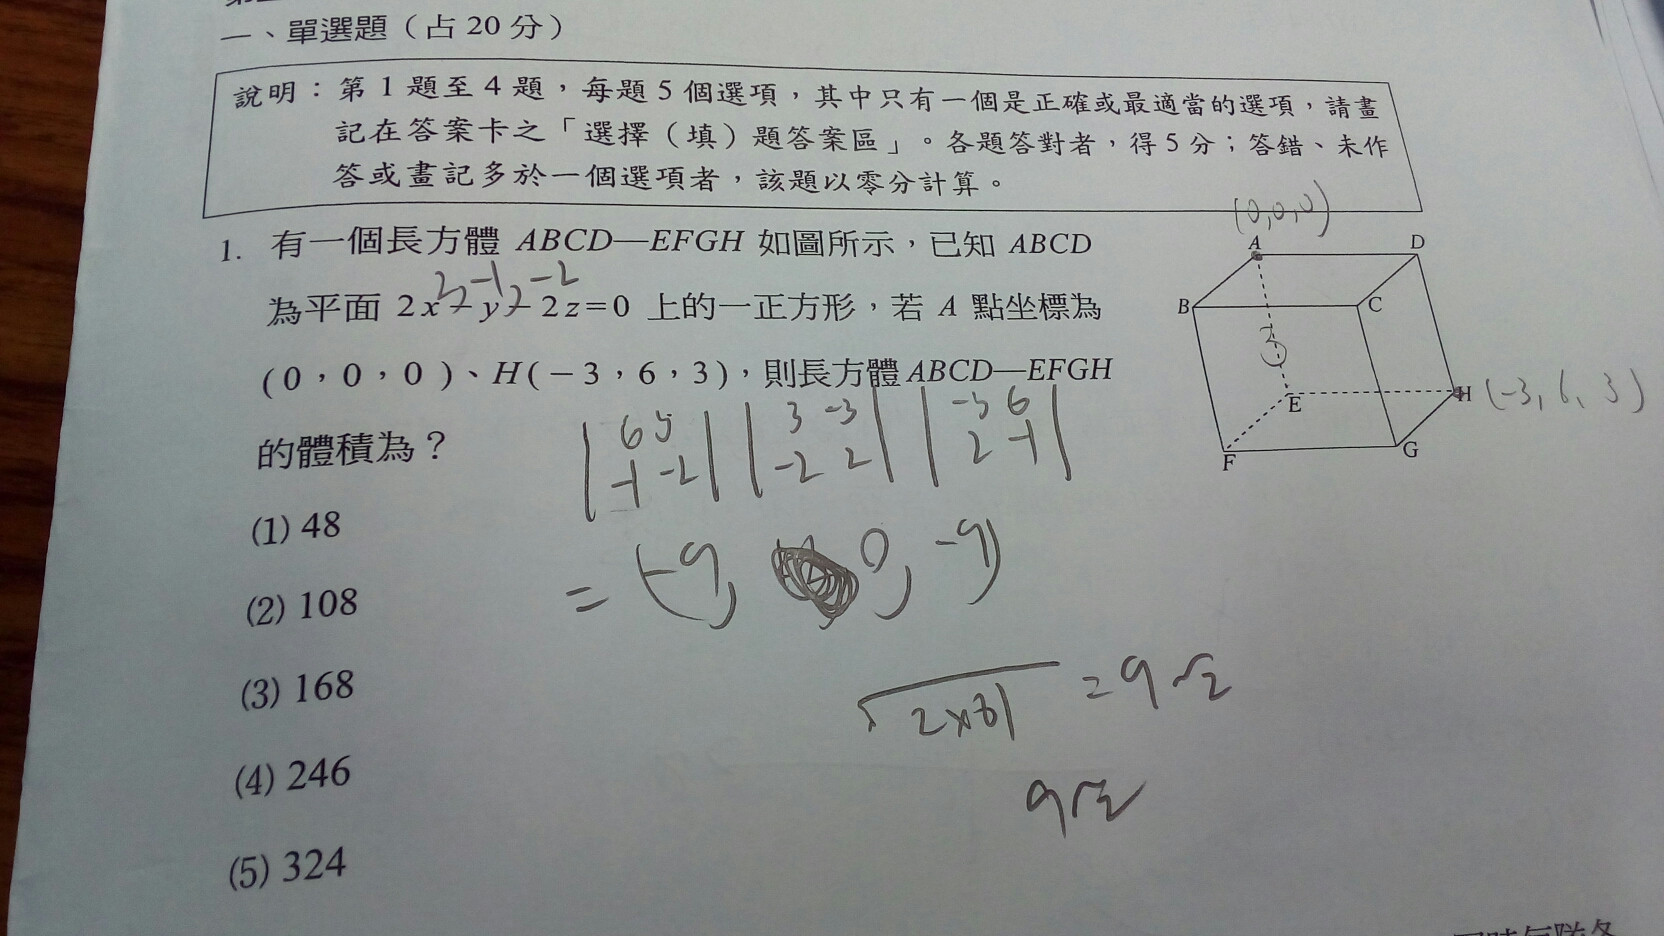 一、單選題（占20分）
說明：第1題至4題，每題5個選項，其中只有一個是正確或最適當的選項，請畫
記在答案卡之「選擇（填）題答案區」。各題答對者，得5分；答錯、未作
答或畫記多於一個選項者，該題以零分計算。
(0,0,0)
1. 有一個長方體 ABCD—EFGH 如圖所示，已知 ABCD
2 -1 -2
為平面 2x－y－2z=0 上的一正方形，若 A 點坐標為
(0，0，0)、H(－3，6，3)，則長方體ABCD—EFGH
的體積為？
A D
B C
3
E H (-3, 6, 3)
F G
6 3 3 -3 -3 6
-1 -2 -2 2 2 -1
(1) 48
= (-9, 0, -9)
(2) 108
(3) 168
√2×81 = 9√2
(4) 246
9√2
(5) 324